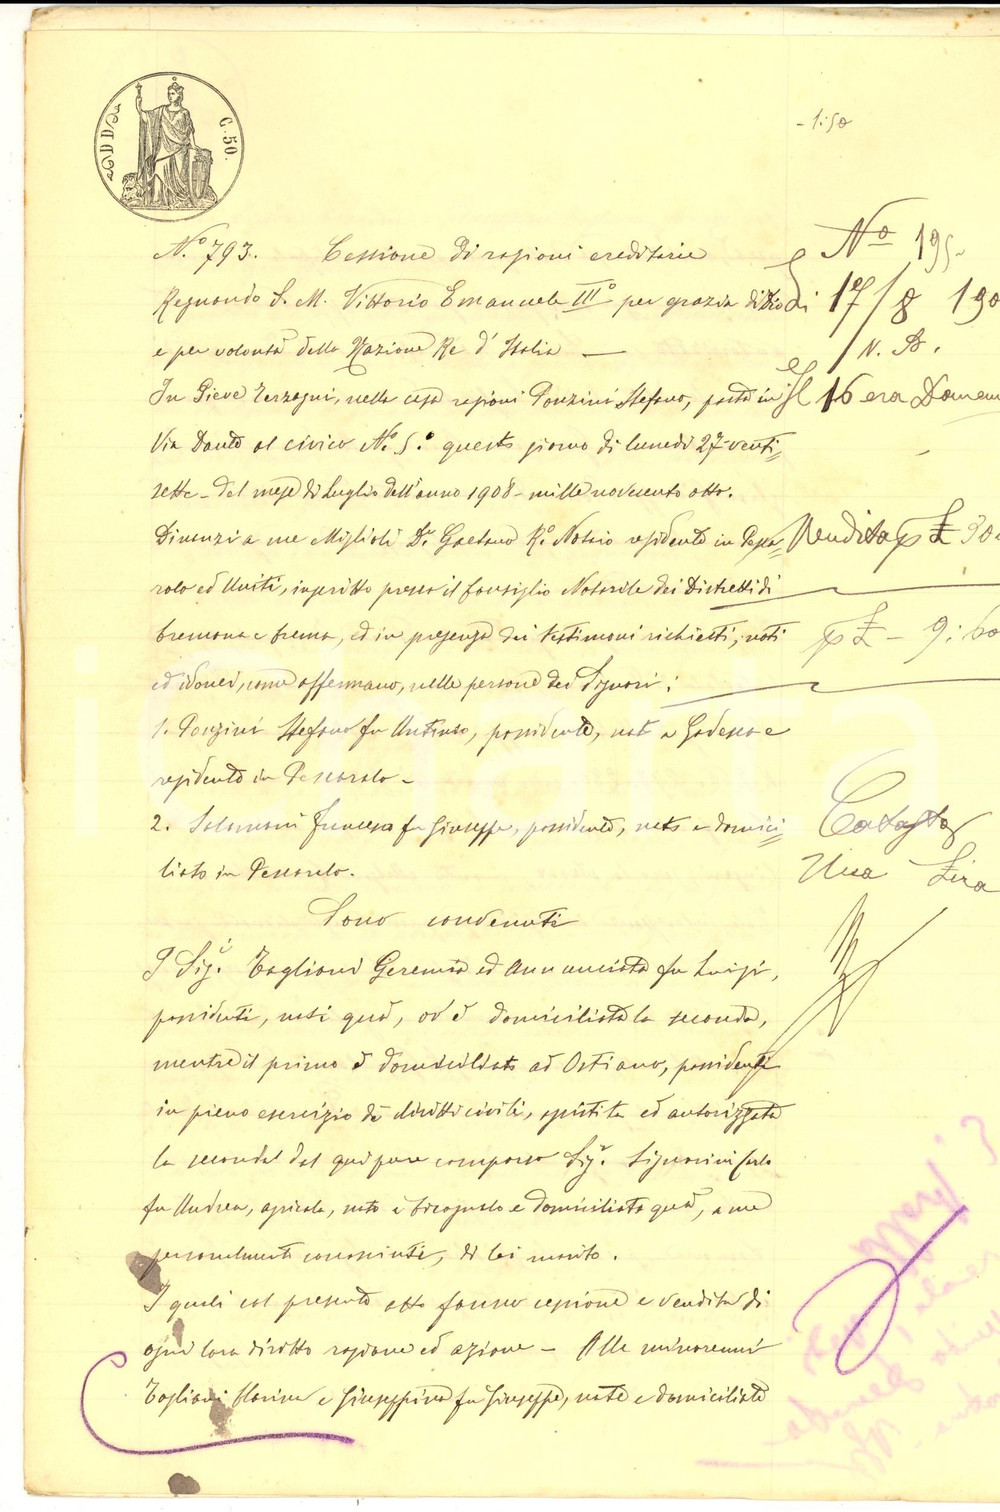 C. 50.
- 1:50
N.° 793. Cessione di ragioni ereditarie
Regnando S. M. Vittorio Emanuele III° per grazia di Dio
e per volontà della Nazione Re d'Italia —
In Pieve Terzagni, nella casa ragioni Ponzini Stefano, posta in
Via Dante al civico N.° 5.° questo giorno di lunedì 27 venti=
sette - del mese di Luglio dell'anno 1908 - mille novecento otto.
Dinanzi a me Miglioli Dr. Gaetano R.° Notaio residente in Pesca=
rolo ed Uniti, inscritto presso il Consiglio Notarile dei Distretti di
Cremona e Crema, ed in presenza dei testimoni richiesti, noti
ed idonei, come affermano, nelle persone dei Signori:
1. Ponzini Stefano fu Antonio, possidente, nato a Gadesco e
residente in Pescarolo -
2. Solomoni Francesco fu Giuseppe, possidente, nato e domici=
liato in Pescarolo.
Sono convenuti
I Sig.i Taglioni Geremia ed Annunciata fu Luigi,
possidenti, nati quà, ov'è domiciliata la seconda,
mentre il primo è domiciliato ad Ostiano, possidenti
in pieno esercizio dei diritti civili, assistita ed autorizzata
la seconda dal qui pure comparso Sig.r Signorini Carlo
fu Andrea, agricola, nato a e domiciliato quà, a me
personalmente conosciuti, di lei marito.
I quali col presente atto fanno cessione e vendita di
ogni loro diritto ragione ed azione - Alle minorenni
Taglioni Marina e Giuseppina fu Giuseppe, nate e domiciliate
N° 195-
di 17/8 190
N. B.
Il 16 era Domen
Vendita p £ 30
p £ - 9:60
Catasto
Una Lira